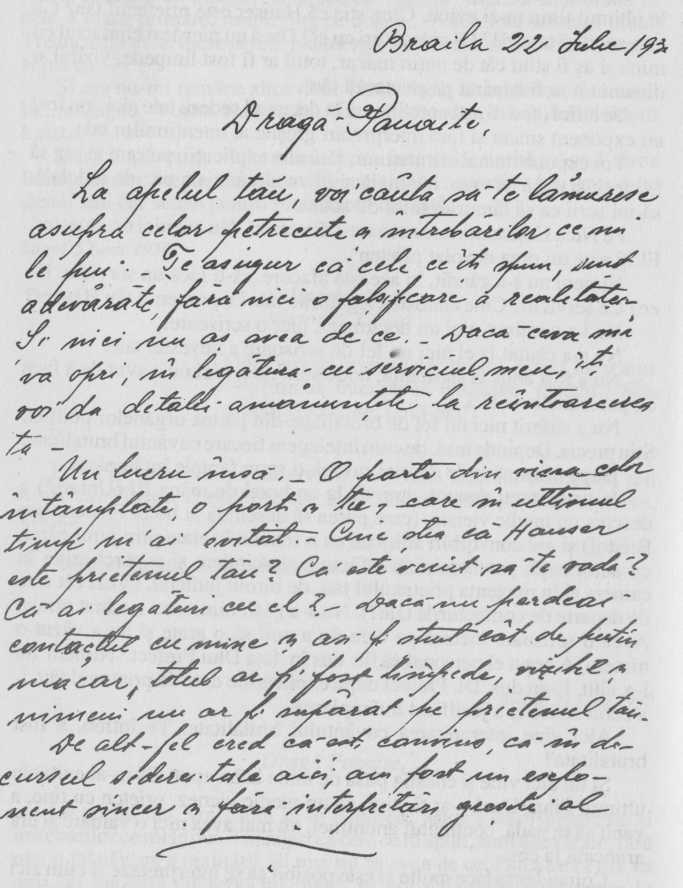 Braila 22 Iulie 193
Dragă Panaite,
La apelul tau, voi căuta să te lămuresc
asupra celor petrecute și întrebărilor ce mi
le pui. Te asigur că cele ce-ți spun, sunt
adevărate, fără nici o falsificare a realităței
Și nici nu aș avea de ce. – Dacă ceva mă
va opri, în legătura cu serviciul meu, îți
voi da detalii amănunțite la reîntoarcerea
ta –
Un lucru însă. – O parte din vina celor
întâmplate, o porți și tu, care în ultimul
timp m'ai evitat. – Cine știa ca Hauser
este prietenul tău? Că este venit să te vadă?
Că ai legături cu el? – Dacă nu pierdeai
contactul cu mine și aș fi știut cât de puțin
macar, totul ar fi fost limpede, vizibil și
nimeni nu ar fi supărat pe prietenul tău.
De alt-fel cred că ești convins, că în de-
cursul șederei tale aici, am fost un expo-
nent sincer și fără interpretări greșite al